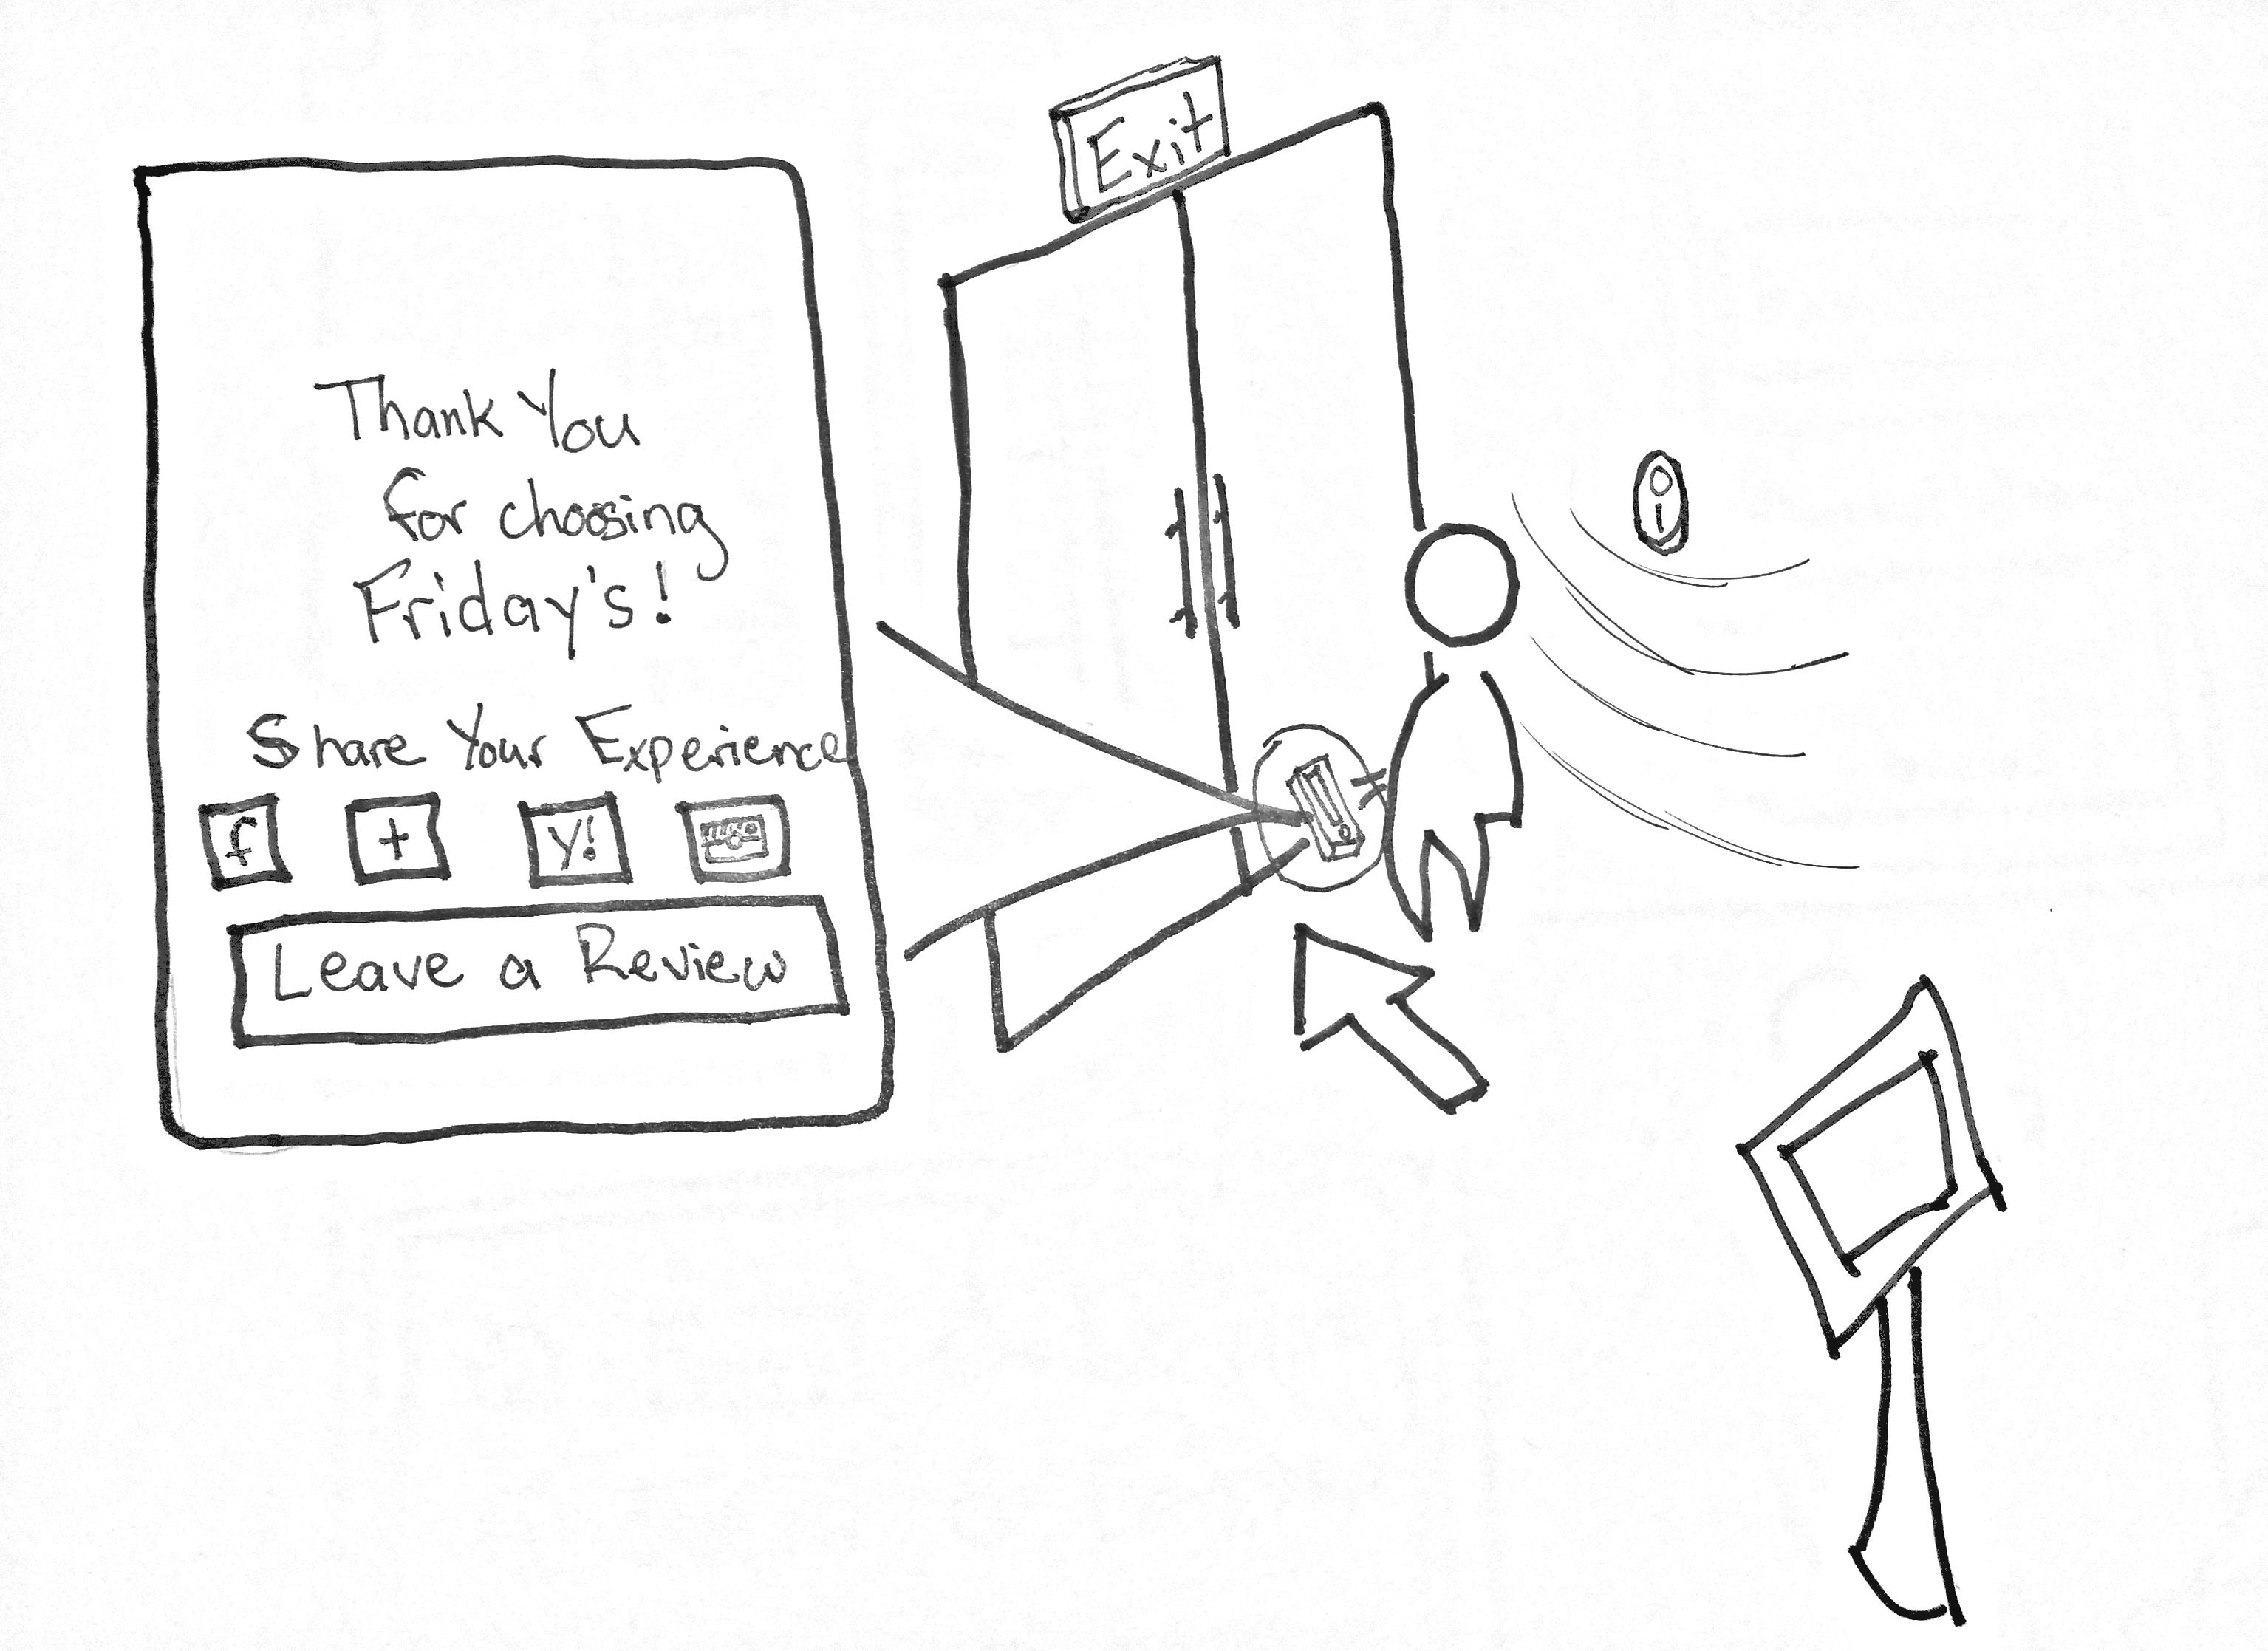 Exit
Thank You
for choosing
Friday's!
Share Your Experience
f + Y!
Leave a Review
i